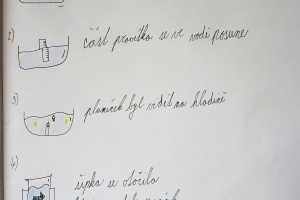 2)
část pravítka se ve vodě posune
3)
plamínek byl vidět na hladině
4)
šipka se otočila